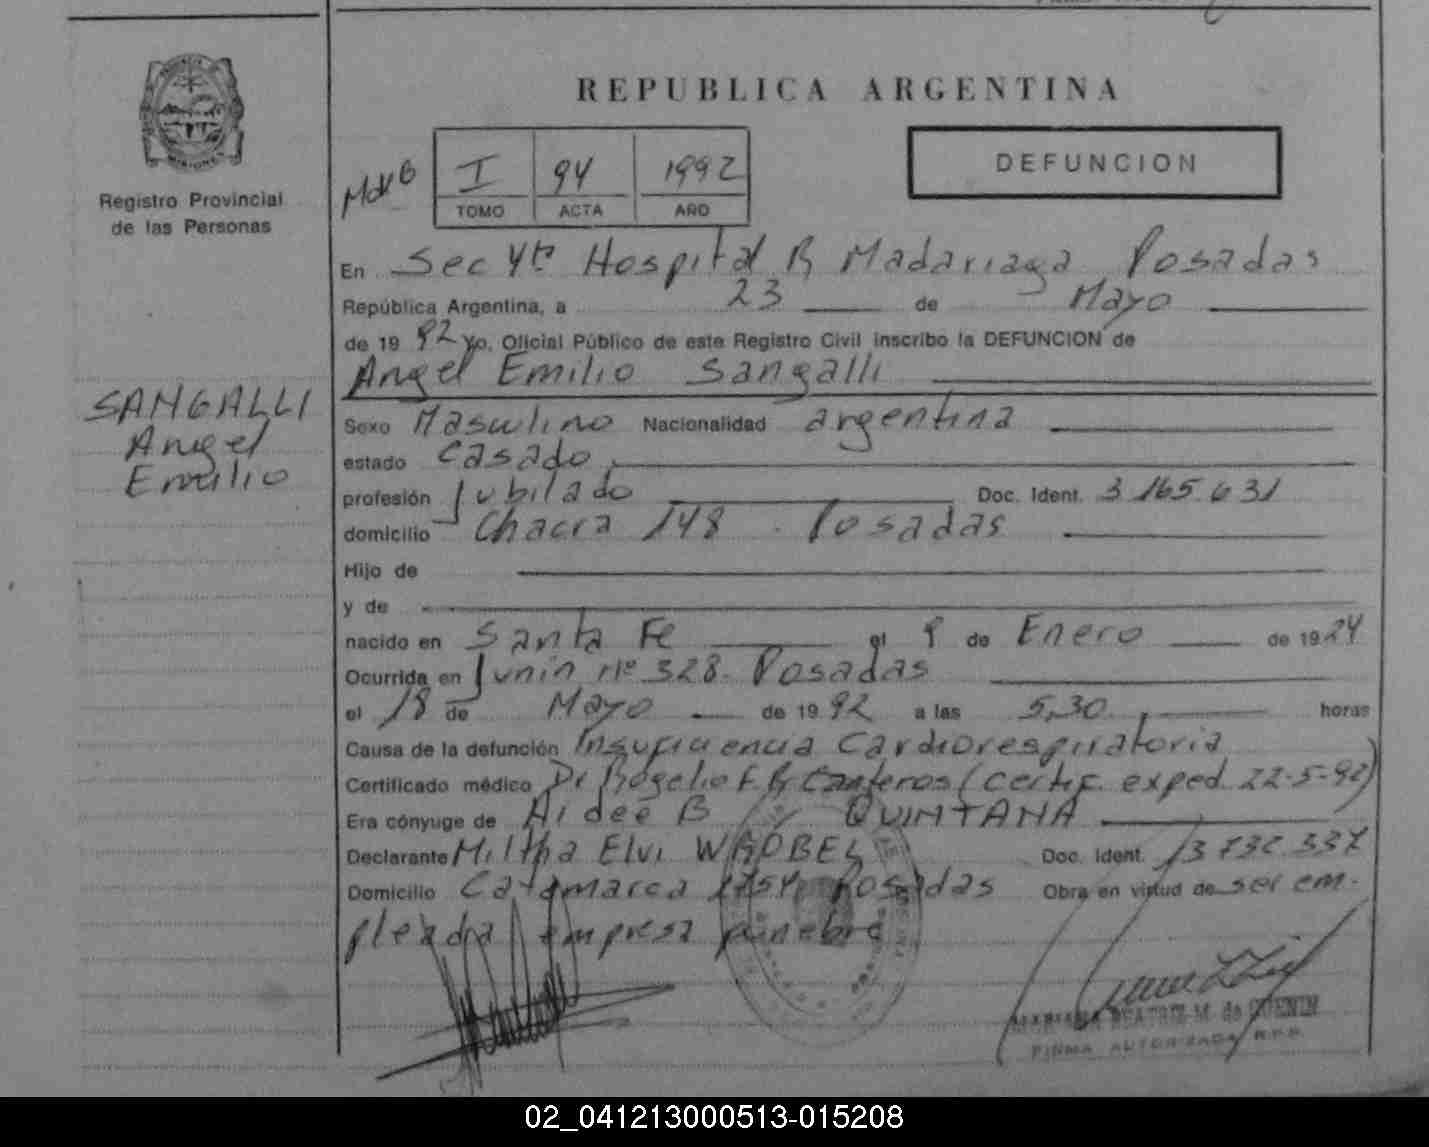 REPUBLICA ARGENTINA
DEFUNCION
I 94 1992
TOMO ACTA AÑO
Registro Provincial
de las Personas
En Sec 4ta Hospital R Madariaga Posadas
República Argentina, a 23 de Mayo
de 1992 yo, Oficial Público de este Registro Civil inscribo la DEFUNCION de
Angel Emilio Sangalli
SANGALLI
Angel
Emilio
Sexo Masculino Nacionalidad argentina
estado Casado
profesión Jubilado Doc. Ident. 3.165.631
domicilio Chacra 148 - Posadas
Hijo de
y de
nacido en Santa Fe el 9 de Enero de 1924
Ocurrida en Junin Nº 328. Posadas
el 18 de Mayo de 1992 a las 5,30 horas
Causa de la defunción Insuficiencia Cardiorespiratoria
Certificado médico Dr Rogelio F. R Canteros (certif. exped. 22-5-92)
Era cónyuge de Aideé B QUINTANA
Declarante Miltha Elvi WROBEL Doc. Ident. 13.732.337
Domicilio Catamarca Posadas Obra en virtud de ser em-
pleada empresa funebre
MARIANA BEATRIZ M. de GUENIN
FIRMA AUTORIZADA R.P.P.
02_041213000513-015208